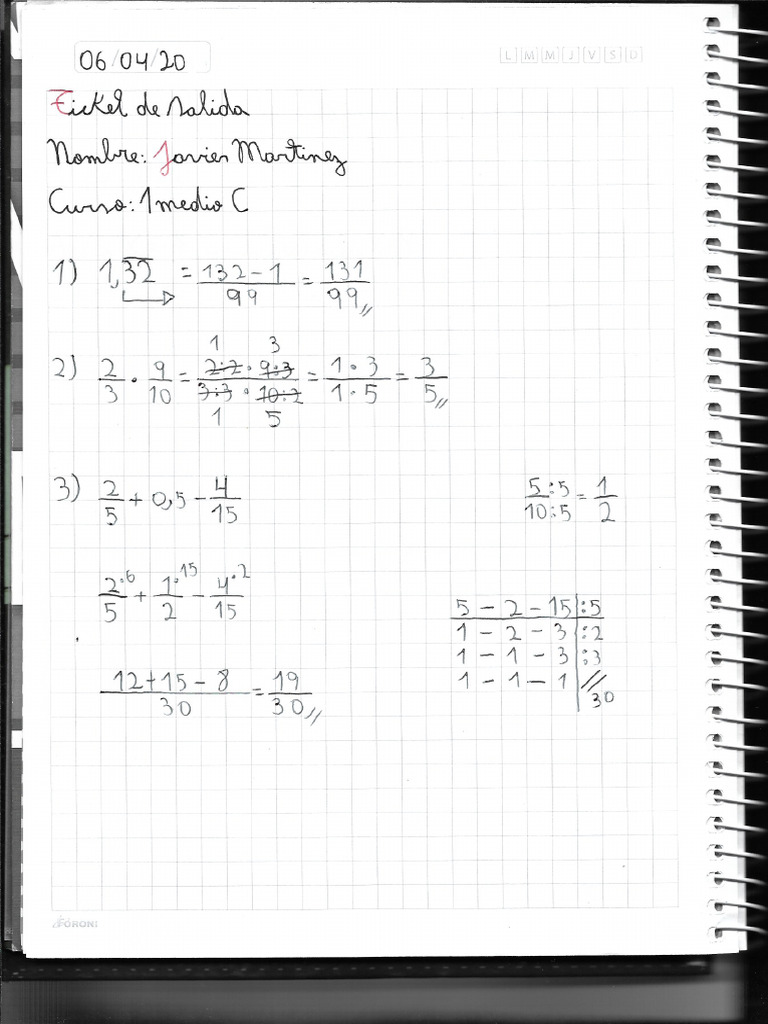 06/04/20
L M M J V S D
Ticket de salida
Nombre: Javier Martinez
Curso: 1 medio C
1) 1,3̅2̅ = (132 - 1)/99 = 131/99 //
2) 2/3 · 9/10 = (2:2 · 9:3)/(3:3 · 10:2) = (1 · 3)/(1 · 5) = 3/5 //
1 3
1 5
3) 2/5 + 0,5 - 4/15
5:5/10:5 = 1/2
2·6/5 + 1·15/2 - 4·2/15
(12 + 15 - 8)/30 = 19/30 //
5 - 2 - 15 | :5
1 - 2 - 3 | :2
1 - 1 - 3 | :3
1 - 1 - 1 | // 30